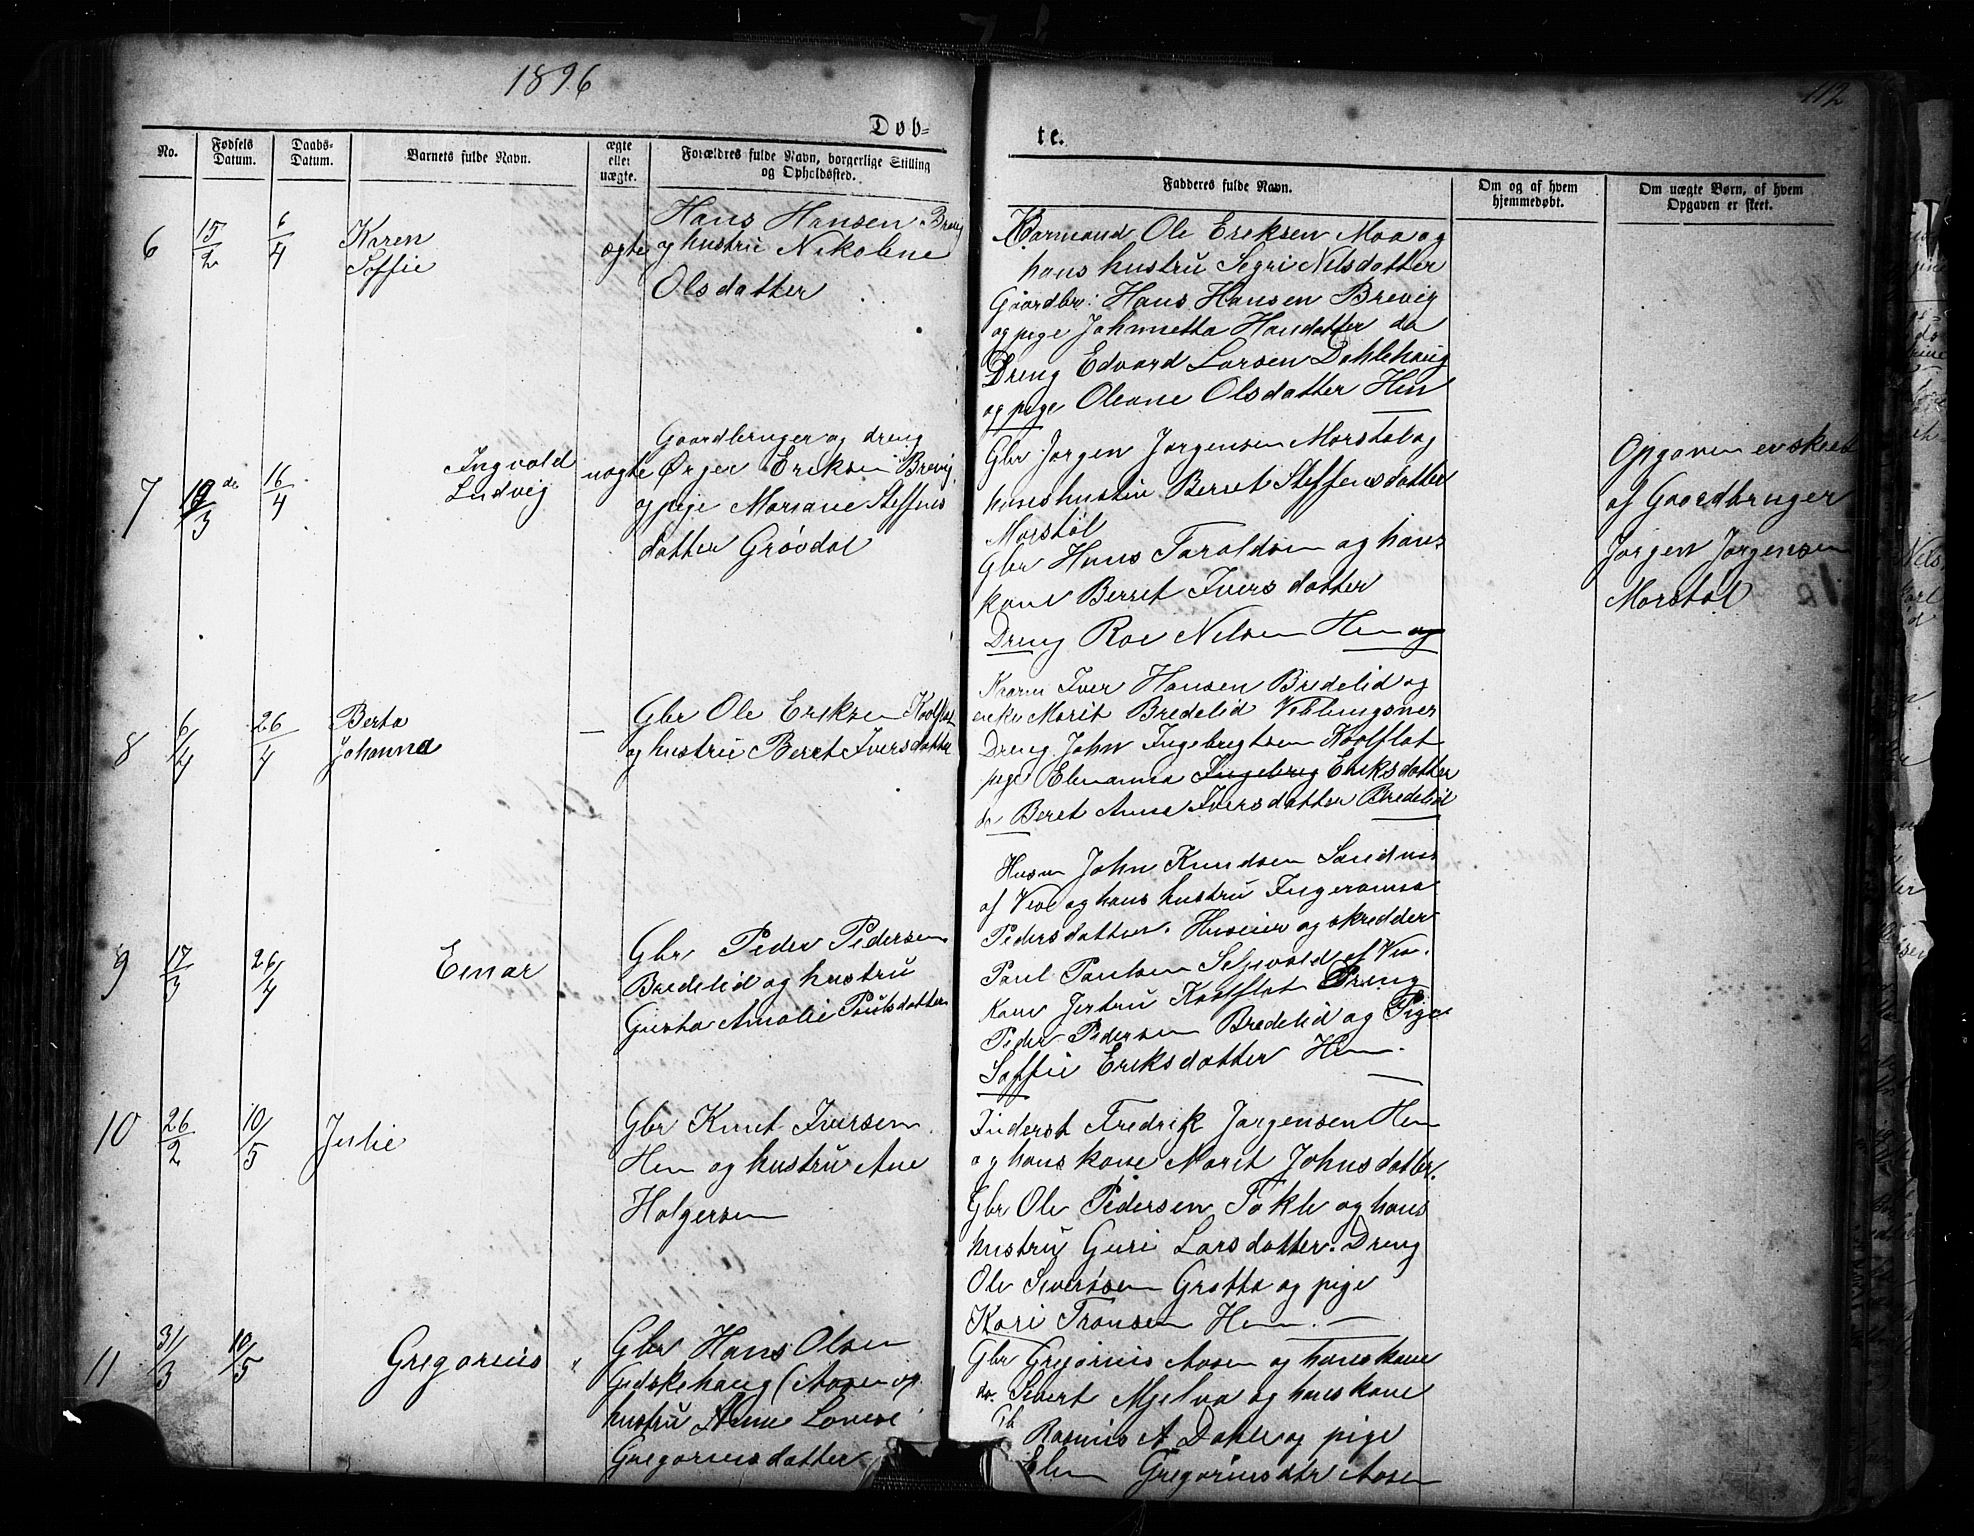 1896
112
Døb-
te.
No.
Fødsels Datum.
Daabs-Datum.
Barnets fulde Navn.
ægte eller uægte.
Forældres fulde Navn, borgerlige Stilling og Opholdssted.
Fadderes fulde Navn.
Om og af hvem hjemmedøbt.
Om uægte Børn, af hvem Opgaven er skeet.
6
15/2
6/4
Karen
Soffie
ægte
Hans Hansen Brevig
og hustru Nikoline
Olsdatter
Kaarmand Ole Eriksen Moa og
hans hustru Segri Nilsdatter
Gaardbr: Hans Hansen Brevig
og pige Johnnetta Hansdatter do
Dreng Edvard Larsen Dahlehaug
og pige Oleane Olsdatter Hen
7
de
16/4
Ingvald
Ludvig
uægte
Gaardbruger og dreng
Ørger Eriksen Brevig
og pige Mariane Steffens
datter Grøvdal
Gbr Jørgen Jørgensen Morstøl og
hans hustru Berret Steffensdatter
Morstøl
Gbr Hans Taraldsen og hans
kone Berret Iversdatter
Dreng Roe Nilsen Hen og
Opgaven er skeet
af Gaardbruger
Jørgen Jørgensen
Morstøl
8
6/4
26/4
Berta
Johanna
—
Gbr Ole Eriksen Kolflot
og hustru Beret Iversdatter
Kaarm Iver Hansen Bredelid og
enke Marit Bredelid Veblungsnes
Dreng John Ingebrigtsen Kolflot
pige Elenanna Ingebrig Eriksdatter
do Beret Anne Iversdatter Bredelid
9
17/3
26/4
Einar
Gbr Peder Pedersen
Bredelid og hustru
Gusta Amalie Poulsdatter
Husm John Knudsen Sandnes
af Veøe og hans hustru Ingeranna
Pedersdatter. Huseier og skredder
Paul Paulsen Seljevold af Veø.
Kone Jertru Kolflot Dreng
Peder Pedersen Bredelid og Pige
Soffie Eriksdatter Hen.
10
26/2
10/5
Julie
Gbr Knut Iversen
Hen og hustru Ane
Holgersen
Inderst Fredrik Jørgensen Hen
og hans kone Marit Johnsdatter.
Gbr Ole Pedersen Tokle og hans
hustru Guri Larsdatter. Dreng
Ole Siversen Grøtta og pige
Kari Tronsen Hen. —
11
31/3
10/5
Gregorius
"
Gbr Hans Olsen
Gidskehaug (Aasen og
hustru Anne Lovise
Gregoriusdatter
Gbr Gregorius Aasen og hans kone
do. Sivert Mjelva og hans kone
Rasmus A Dahle og pige
Elen Gregoriusdtr Aasen